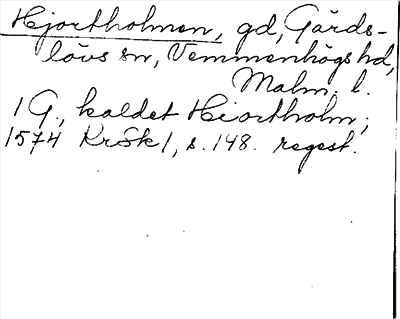 Hjortholmen, gd, Gärds-
lövs sn, Vemmenhögs hd,
Malm. l.
1 G., kaldet Hiortholm;
1574 KrSk 1, s. 148. regest.